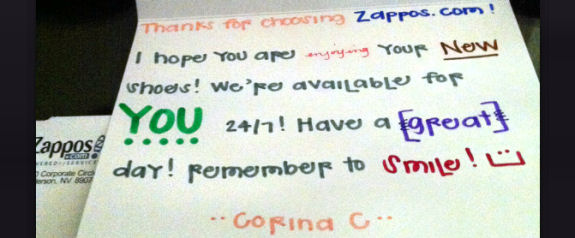 Thanks for choosing Zappos.com!
I hope you are enjoying Your New
shoes! We're available for
YOU 24/7! Have a [great]
day! Remember to Smile!
·· Corina C ··
Zappos
.com
POWERED by SERVICE
Corporate Circ
erson, NV 8907